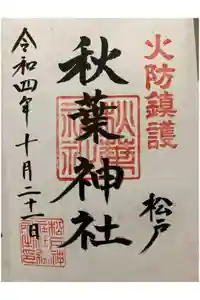 火防鎮護
松戸
秋葉神社
令和四年十月二十一日